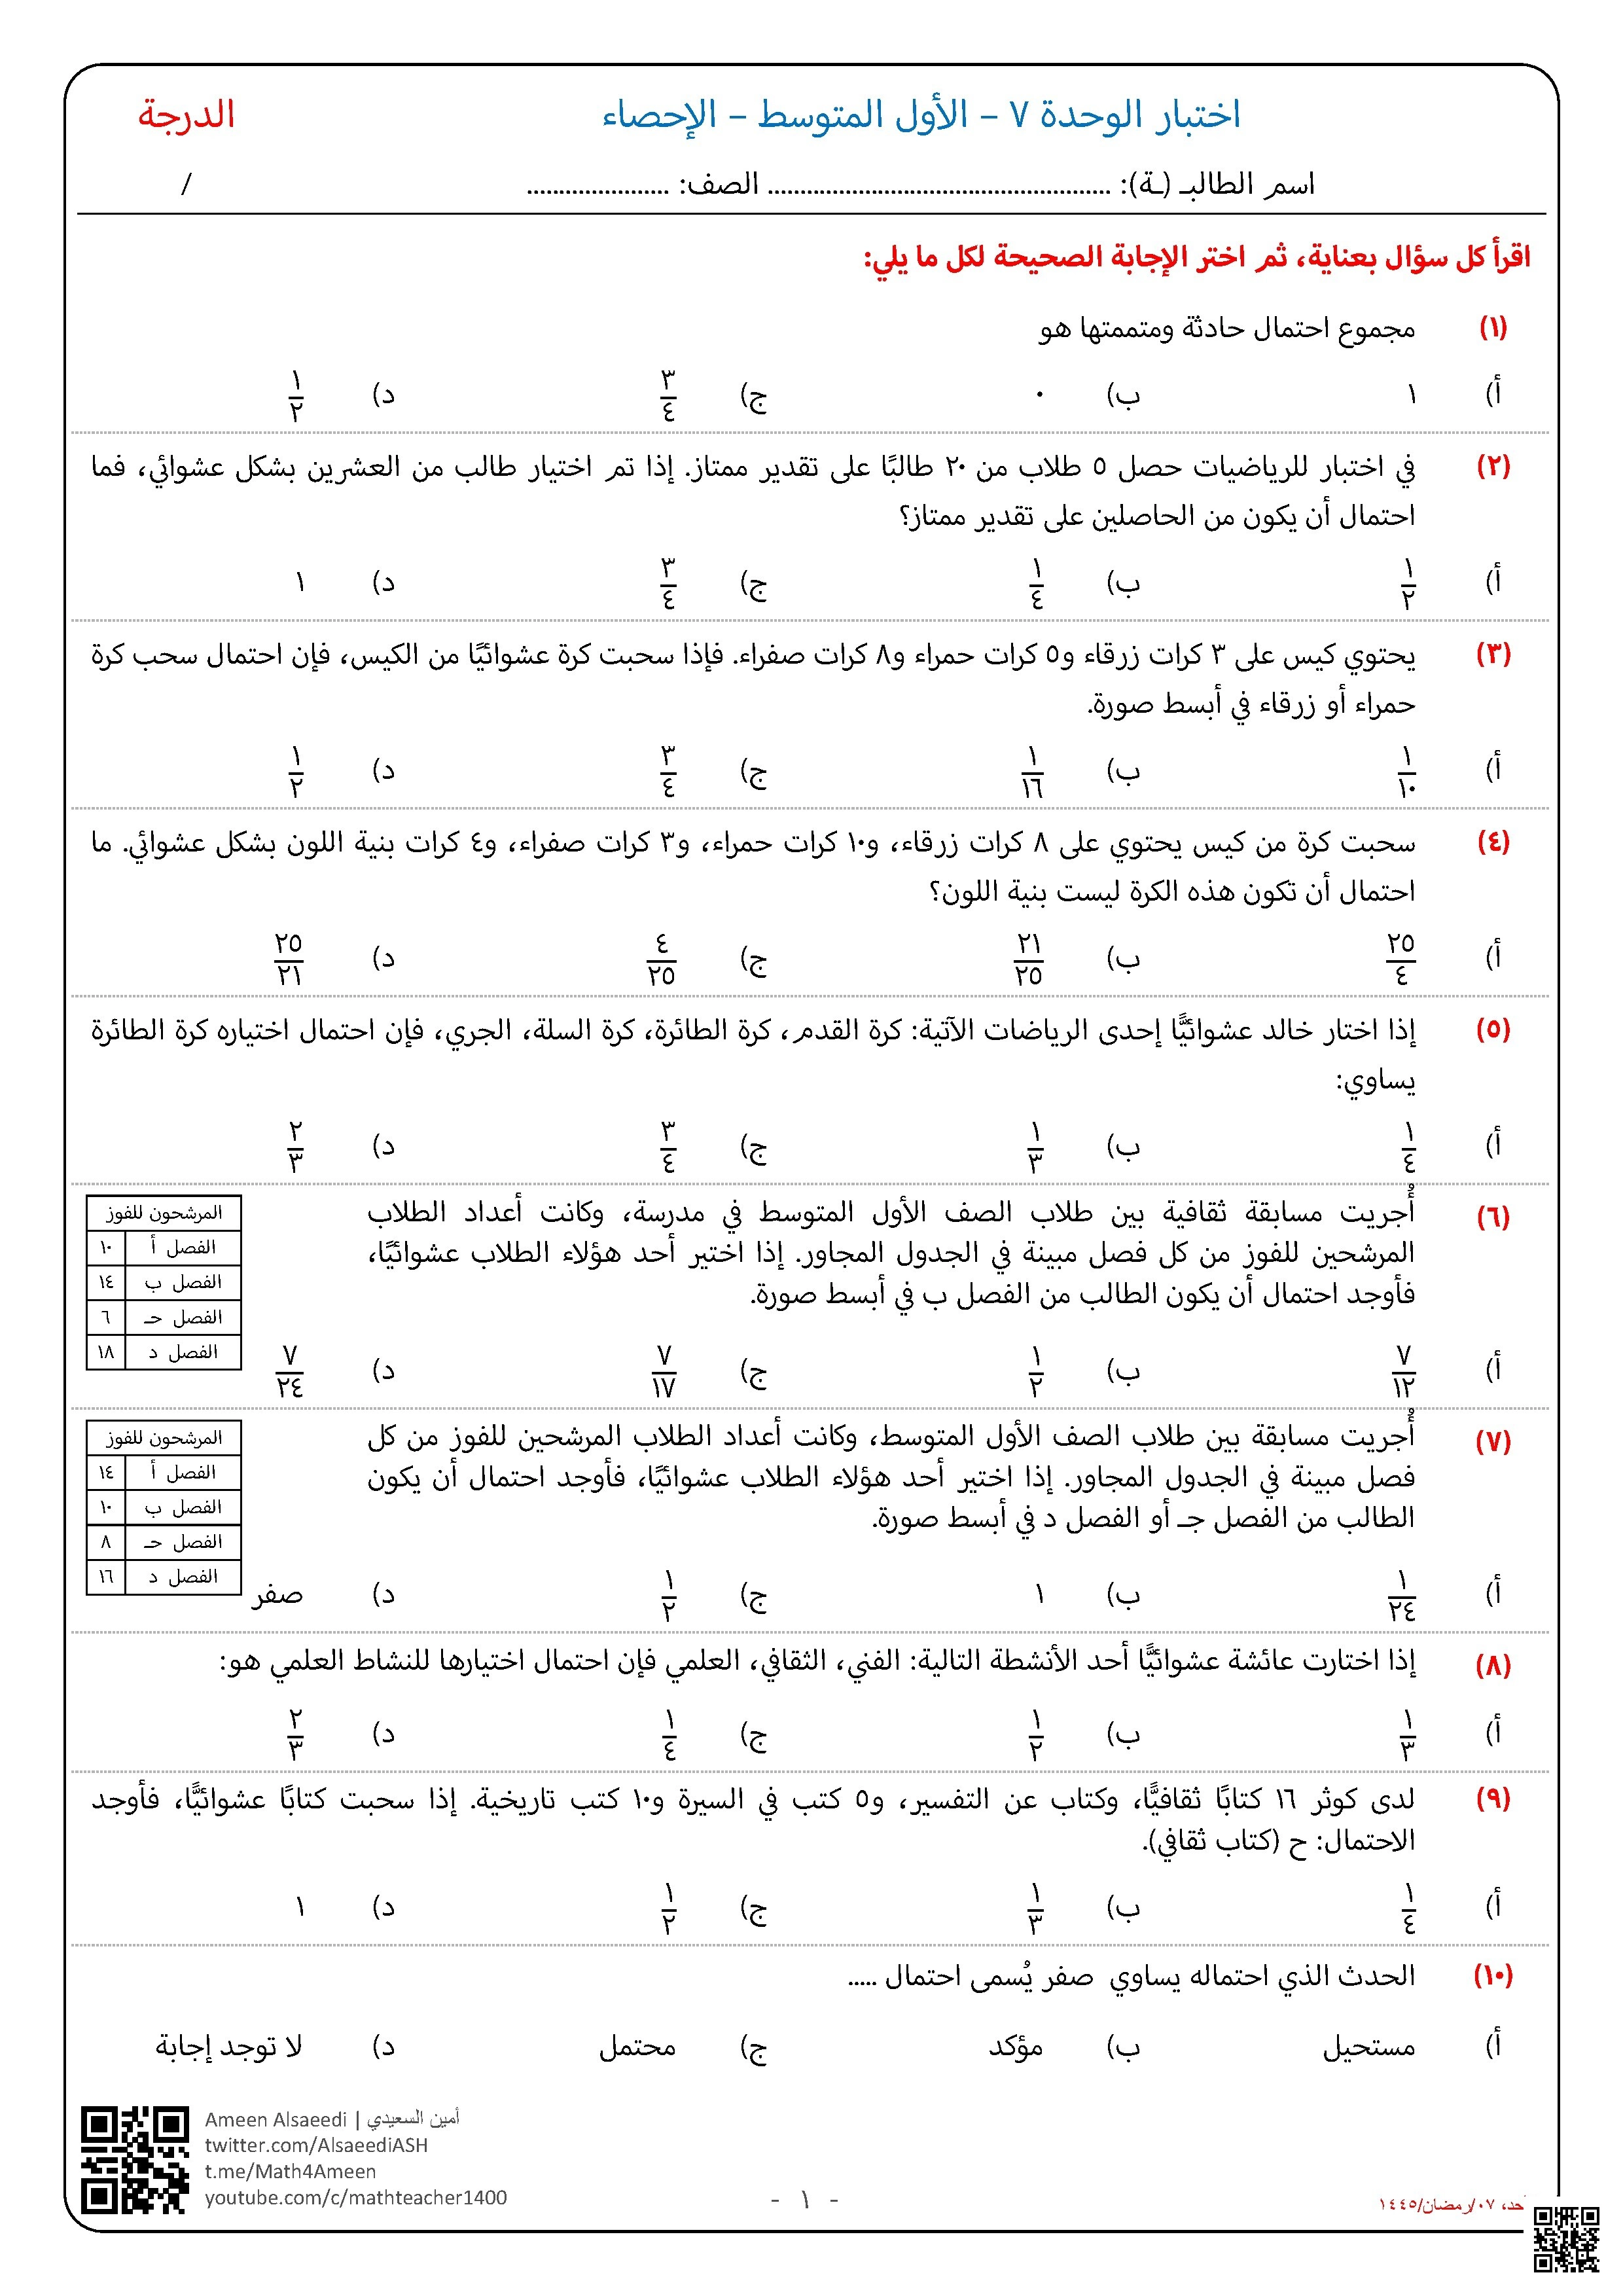 اختبار الوحدة ٧ – الأول المتوسط – الإحصاء
الدرجة
اسم الطالبـ (ـة): ..................................................... الصف: ......................
/
اقرأ كل سؤال بعناية، ثم اختر الإجابة الصحيحة لكل ما يلي:
(١) مجموع احتمال حادثة ومتممتها هو
أ) ١ ب) ٠ ج) ٣/٤ د) ١/٢
(٢) في اختبار للرياضيات حصل ٥ طلاب من ٢٠ طالبًا على تقدير ممتاز. إذا تم اختيار طالب من العشرين بشكل عشوائي، فما
احتمال أن يكون من الحاصلين على تقدير ممتاز؟
أ) ١/٢ ب) ١/٤ ج) ٣/٤ د) ١
(٣) يحتوي كيس على ٣ كرات زرقاء و٥ كرات حمراء و٨ كرات صفراء. فإذا سحبت كرة عشوائيًا من الكيس، فإن احتمال سحب كرة
حمراء أو زرقاء في أبسط صورة.
أ) ١/١٠ ب) ١/١٦ ج) ٣/٤ د) ١/٢
(٤) سحبت كرة من كيس يحتوي على ٨ كرات زرقاء، و١٠ كرات حمراء، و٣ كرات صفراء، و٤ كرات بنية اللون بشكل عشوائي. ما
احتمال أن تكون هذه الكرة ليست بنية اللون؟
أ) ٢٥/٤ ب) ٢١/٢٥ ج) ٤/٢٥ د) ٢٥/٢١
(٥) إذا اختار خالد عشوائيًّا إحدى الرياضات الآتية: كرة القدم، كرة الطائرة، كرة السلة، الجري، فإن احتمال اختياره كرة الطائرة
يساوي:
أ) ١/٤ ب) ١/٣ ج) ٣/٤ د) ٢/٣
(٦) أُجريت مسابقة ثقافية بين طلاب الصف الأول المتوسط في مدرسة، وكانت أعداد الطلاب
المرشحين للفوز من كل فصل مبينة في الجدول المجاور. إذا اختير أحد هؤلاء الطلاب عشوائيًا،
فأوجد احتمال أن يكون الطالب من الفصل ب في أبسط صورة.
المرشحون للفوز
الفصل أ ١٠
الفصل ب ١٤
الفصل حـ ٦
الفصل د ١٨
أ) ٧/١٢ ب) ١/٢ ج) ٧/١٧ د) ٧/٢٤
(٧) أُجريت مسابقة بين طلاب الصف الأول المتوسط، وكانت أعداد الطلاب المرشحين للفوز من كل
فصل مبينة في الجدول المجاور. إذا اختير أحد هؤلاء الطلاب عشوائيًا، فأوجد احتمال أن يكون
الطالب من الفصل جـ أو الفصل د في أبسط صورة.
المرشحون للفوز
الفصل أ ١٤
الفصل ب ١٠
الفصل حـ ٨
الفصل د ١٦
أ) ١/٢٤ ب) ١ ج) ١/٢ د) صفر
(٨) إذا اختارت عائشة عشوائيًّا أحد الأنشطة التالية: الفني، الثقافي، العلمي فإن احتمال اختيارها للنشاط العلمي هو:
أ) ١/٣ ب) ١/٢ ج) ١/٤ د) ٢/٣
(٩) لدى كوثر ١٦ كتابًا ثقافيًّا، وكتاب عن التفسير، و٥ كتب في السيرة و١٠ كتب تاريخية. إذا سحبت كتابًا عشوائيًّا، فأوجد
الاحتمال: ح (كتاب ثقافي).
أ) ١/٤ ب) ١/٣ ج) ١/٢ د) ١
(١٠) الحدث الذي احتماله يساوي صفر يُسمى احتمال .....
أ) مستحيل ب) مؤكد ج) محتمل د) لا توجد إجابة
Ameen Alsaeedi | أمين السعيدي
twitter.com/AlsaeediASH
t.me/Math4Ameen
youtube.com/c/mathteacher1400
- ١ -
٠٧/رمضان/١٤٤٥